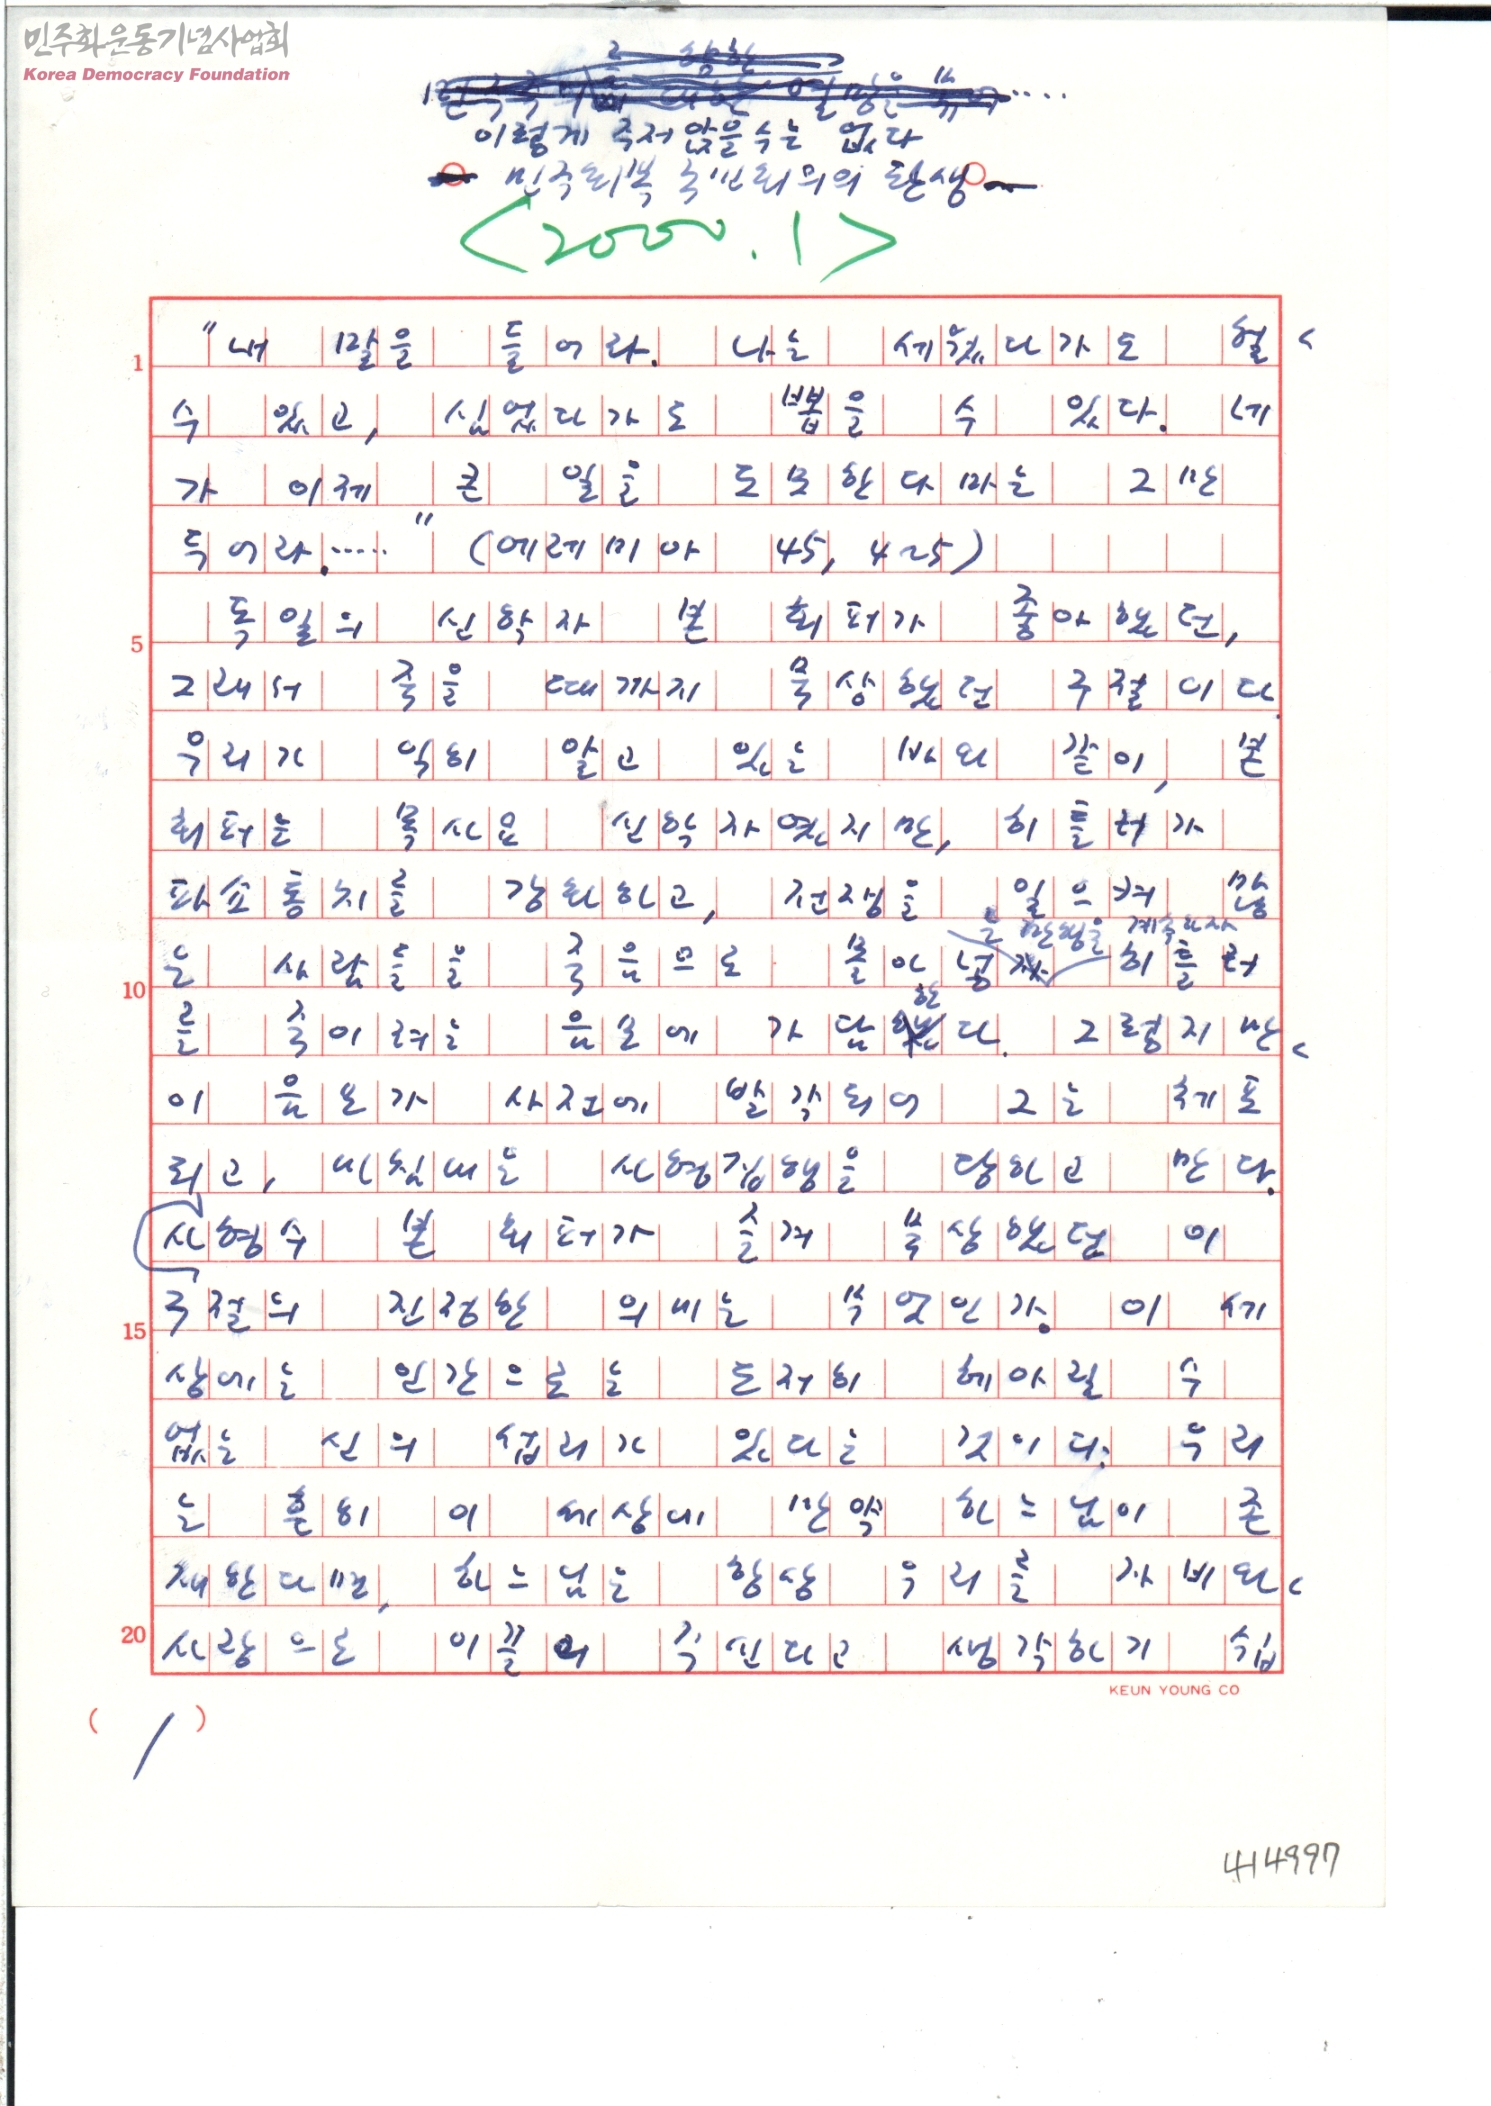 민주화운동기념사업회
Korea Democracy Foundation
이렇게 주저앉을 수는 없다
민주회복 국민회의의 탄생
<2000. 1>
"내 말을 들어라. 나는 세웠다가도 헐
수 있고, 심었다가도 뽑을 수 있다. 네
가 이제 큰 일을 도모한다마는 그만
두어라....." (예레미아 45, 4~5)
독일의 신학자 본 회퍼가 좋아했던,
그래서 죽을 때까지 묵상했던 구절이다.
우리가 익히 알고 있는 바와 같이, 본
회퍼는 목사요 신학자였지만, 히틀러가
파쇼통치를 강화하고, 전쟁을 일으켜 많
은 사람들을 죽음으로 몰아넣는 만행을 계속하자 히틀러
를 죽이려는 음모에 가담한다. 그렇지만
이 음모가 사전에 발각되어 그는 체포
되고, 마침내는 사형집행을 당하고 만다.
사형수 본 회퍼가 즐겨 묵상했던 이
구절의 진정한 의미는 무엇인가. 이 세
상에는 인간으로는 도저히 헤아릴 수
없는 신의 섭리가 있다는 것이다. 우리
는 흔히 이 세상에 만약 하느님이 존
재한다면, 하느님은 항상 우리를 자비와
사랑으로 이끌어 주신다고 생각하기 쉽
1
5
10
15
20
KEUN YOUNG CO
( 1 )
414997